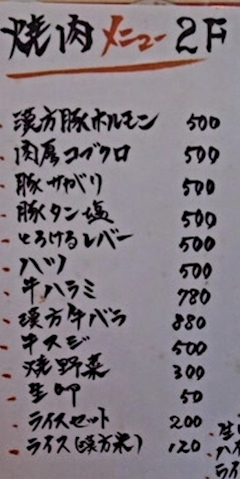 焼肉 メニュー 2F
漢方豚ホルモン 500
肉厚コブクロ 500
豚サガリ 500
豚タン塩 500
とろけるレバー 500
ハツ 500
牛ハラミ 780
漢方牛バラ 880
牛スジ 500
焼野菜 300
生卵 50
ライスセット 200
ライス(漢方米) 120
生
ハイ
ライ